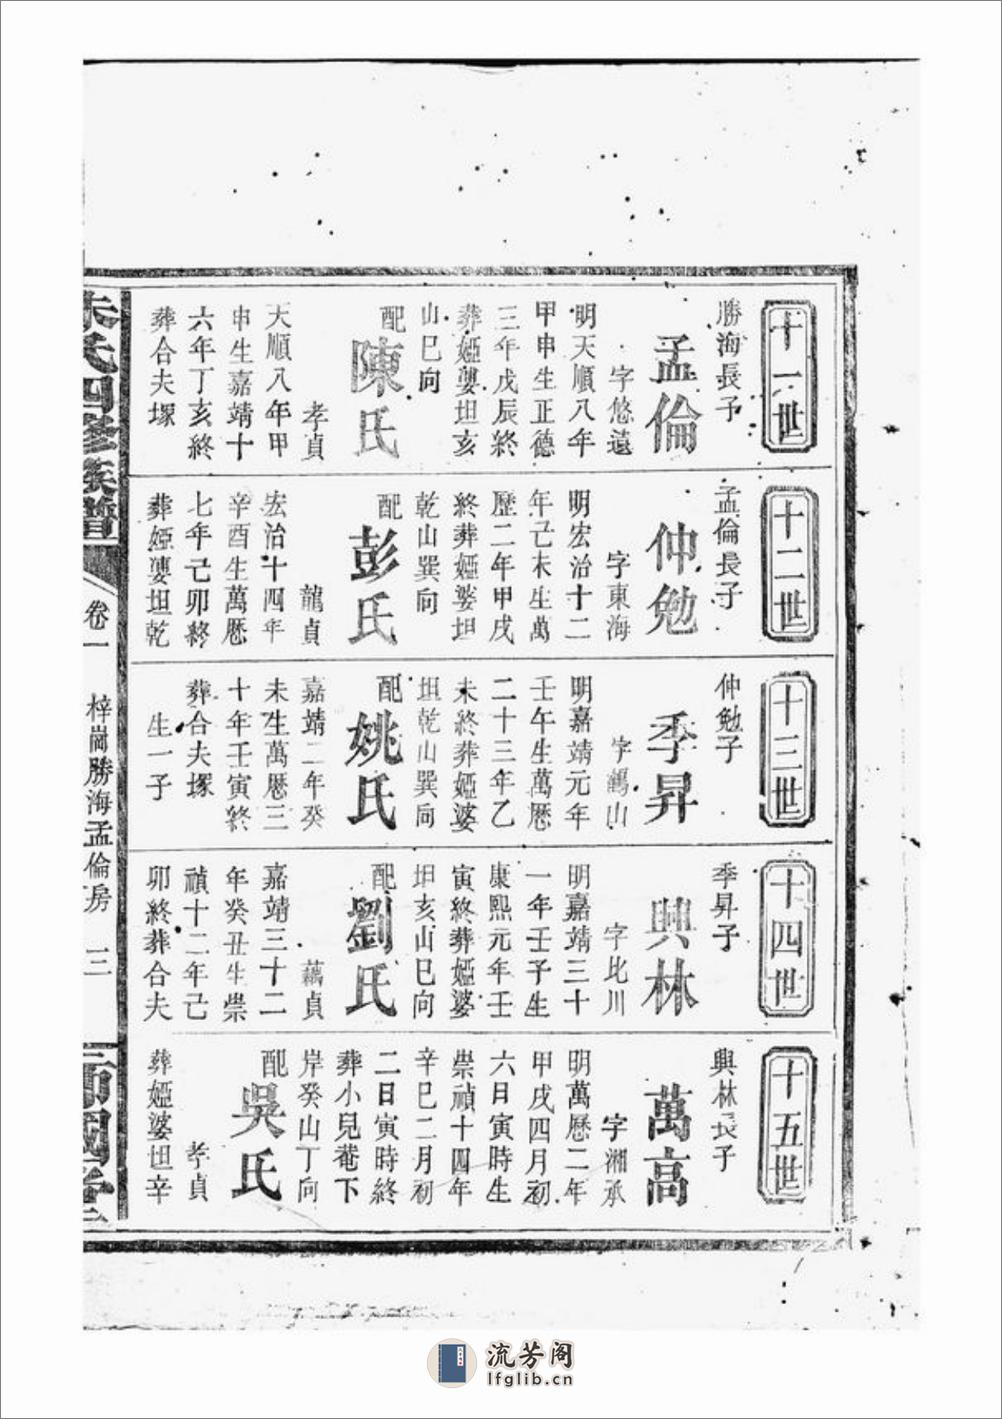 十一世
勝海長子
孟倫
字悠遠
明天順八年
甲申生正德
三年戊辰終
葬婭婆坦亥
山巳向
配
陳氏
孝貞
天順八年甲
申生嘉靖十
六年丁亥終
葬合夫塚
十二世
孟倫長子
仲勉
字東海
明宏治十二
年己未生萬
歷二年甲戌
終葬婭婆坦
乾山巽向
配
彭氏
龍貞
宏治十四年
辛酉生萬歷
七年己卯終
葬婭婆坦乾
十三世
仲勉子
季昇
字鶴山
明嘉靖元年
壬午生萬歷
二十三年乙
未終葬婭婆
坦乾山巽向
配
姚氏
嘉靖二年癸
未生萬歷三
十年壬寅終
葬合夫塚
生一子
十四世
季昇子
興林
字比川
明嘉靖三十
一年壬子生
康熙元年壬
寅終葬婭婆
坦亥山巳向
配
劉氏
藕貞
嘉靖三十二
年癸丑生崇
禎十二年己
卯終葬合夫
十五世
與林長子
萬高
字湘承
明萬歷二年
甲戌四月初
六日寅時生
崇禎十四年
辛巳二月初
二日寅時終
葬小兒菴下
岸癸山丁向
配
吳氏
孝貞
葬婭婆坦辛
朱氏四修族譜
卷一
梓崗勝海孟倫房
三
流芳阁
lfglib.cn